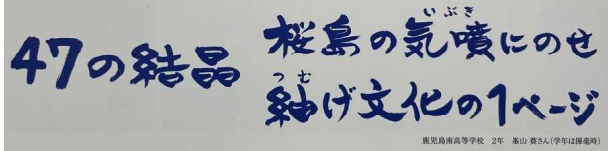 47の結晶
桜島の気噴にのせ
いぶき
紬げ文化の1ページ
つむ
鹿児島南高等学校 2年 峯山 葵さん(学年は揮毫時)